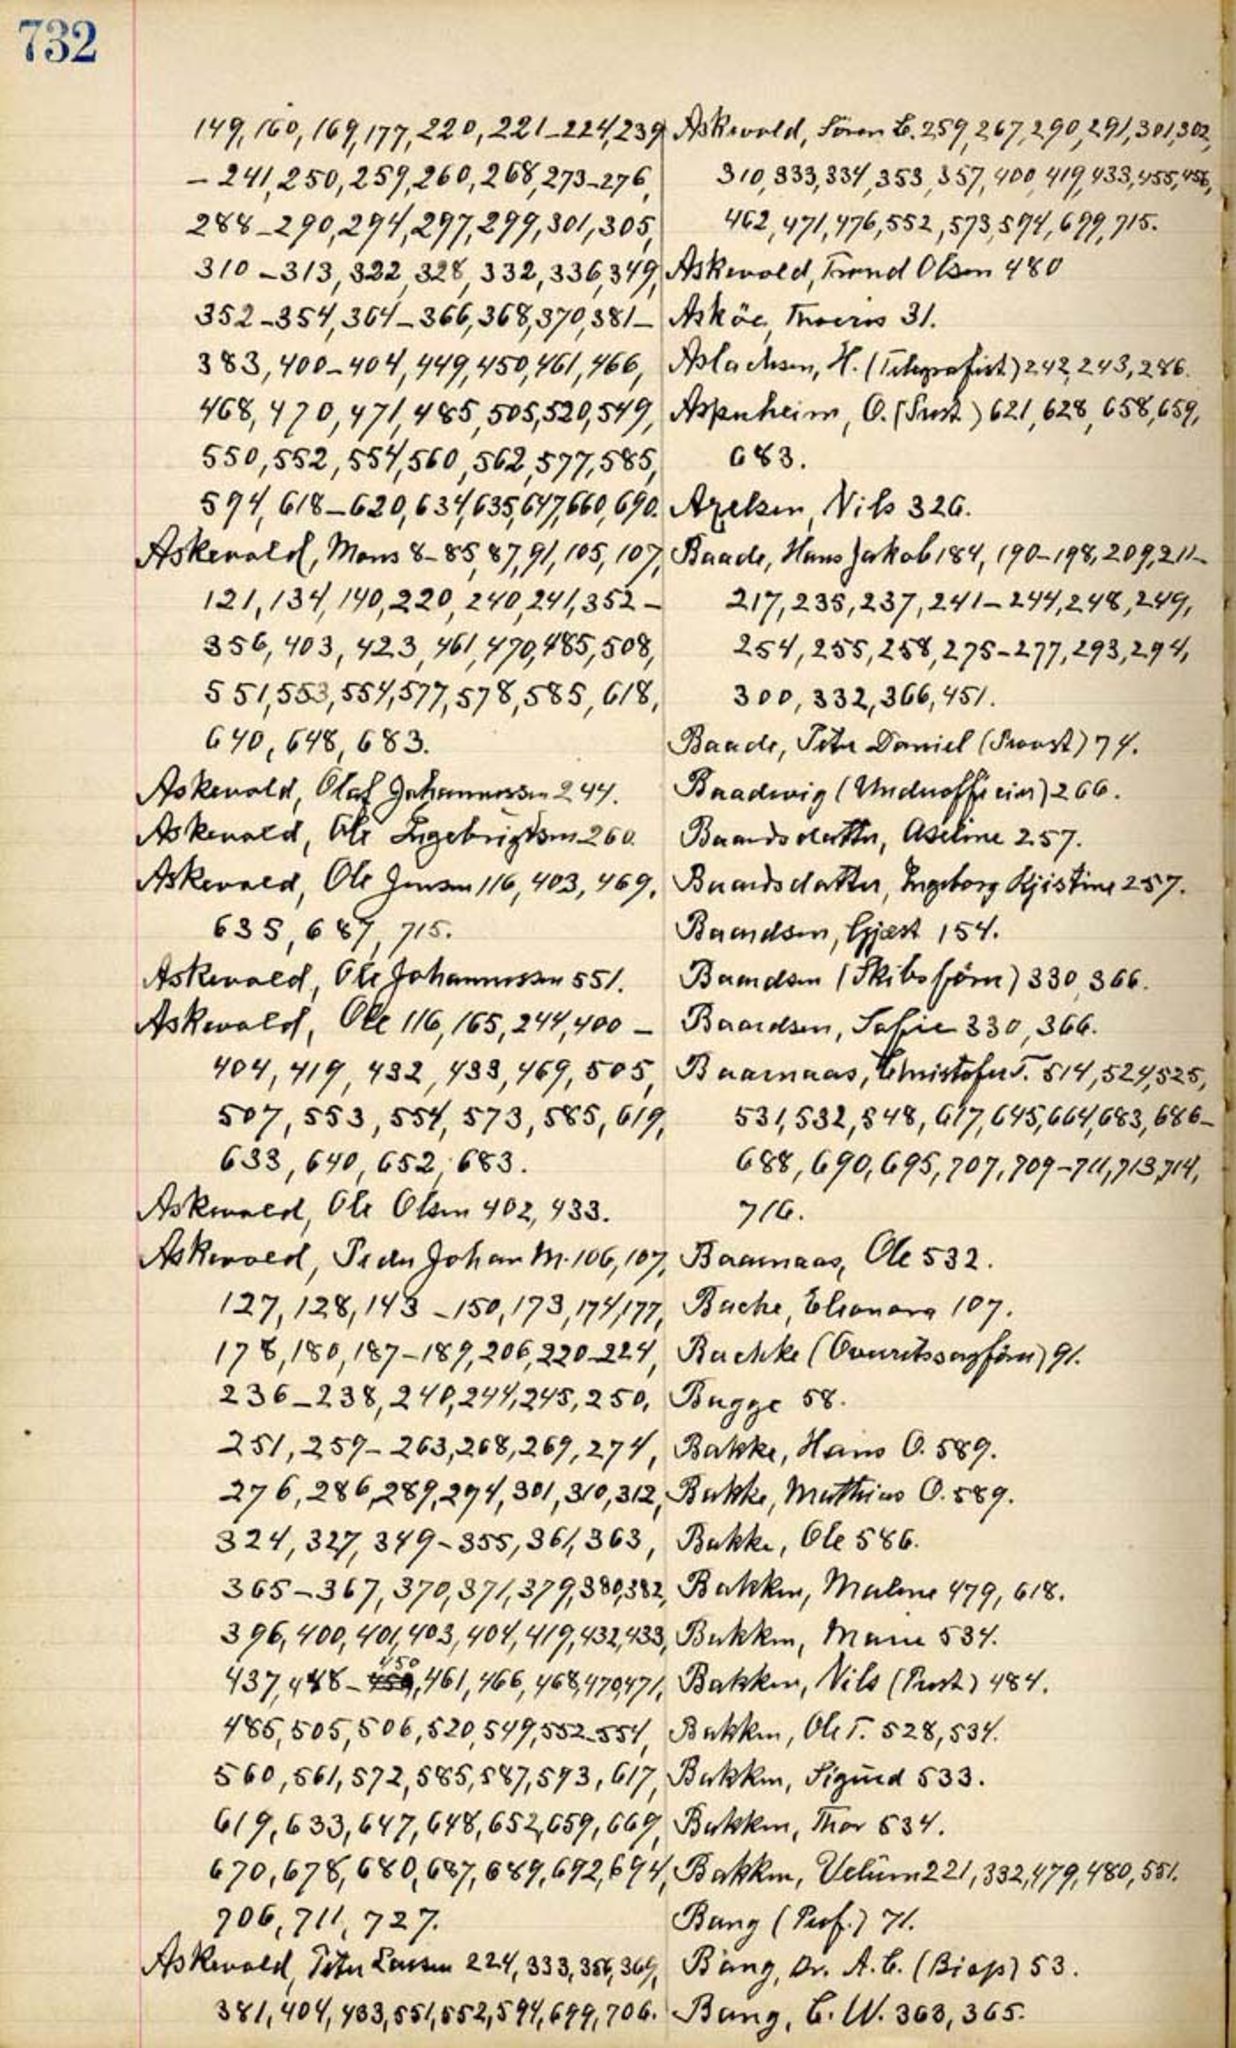 732
149, 160, 169, 177, 220, 221-224, 239
- 241, 250, 259, 260, 268, 273-276,
288-290, 294, 297, 299, 301, 305,
310-313, 322, 328, 332, 336, 349,
352-354, 364-366, 368, 370, 381-
383, 400-404, 449, 450, 461, 466,
468, 470, 471, 485, 505, 520, 549,
550, 552, 554, 560, 562, 577, 585,
594, 618-620, 634, 635, 647, 660, 690.
Askevold, Mons 8-85, 87, 91, 105, 107,
121, 134, 140, 220, 240, 241, 352-
356, 403, 423, 461, 470, 485, 508,
551, 553, 554, 577, 578, 585, 618,
640, 648, 683.
Askevold, Olaf Johannessen 244.
Askevold, Ole Ingebrigtsen 260.
Askevold, Ole Jensen 116, 403, 469,
635, 687, 715.
Askevold, Ole Johannessen 551.
Askevold, Ole 116, 165, 244, 400-
404, 419, 432, 433, 469, 505,
507, 553, 554, 573, 585, 619,
633, 640, 652, 683.
Askevold, Ole Olsen 402, 433.
Askevold, Peder Johan M. 106, 107,
127, 128, 143-150, 173, 174, 177,
178, 180, 187-189, 206, 220-224,
236-238, 240, 244, 245, 250,
251, 259-263, 268, 269, 274,
276, 286, 289, 294, 301, 310, 312,
324, 327, 349-355, 361, 363,
365-367, 370, 371, 379, 380, 382,
396, 400, 401, 403, 404, 419, 432, 433,
437, 448-450, 461, 466, 468, 470, 471,
485, 505, 506, 520, 549, 552-554,
560, 561, 572, 585, 587, 593, 617,
619, 633, 647, 648, 652, 659, 669,
670, 678, 680, 687, 689, 692, 694,
706, 711, 727.
Askevold, Peter Larsen 224, 333, 356, 369,
381, 404, 433, 551, 552, 594, 699, 706.
Askevold, Sören C. 259, 267, 290, 291, 301, 302,
310, 333, 334, 353, 357, 400, 419, 433, 455, 456,
462, 471, 476, 552, 573, 594, 699, 715.
Askevold, Trond Olsen 480
Asköe, 31.
Aslachsen, H. (Telegrafist) 242, 243, 286.
Aspenheim, O. (Prest.) 621, 628, 658, 659,
683.
Axelsen, Nils 326.
Baade, Hans Jakob 184, 190-198, 209, 211-
217, 235, 237, 241-244, 248, 249,
254, 255, 258, 275-277, 293, 294,
300, 332, 366, 451.
Baade, Peter Daniel (Provst) 74.
Baadevig (Underofficier) 266.
Baardsdatter, Aseline 257.
Baardsdatter, Ingeborg Kjistine 257.
Baardsen, Gjest 154.
Baardsen (Skibsförer) 330, 366.
Baardsen, Sofie 330, 366.
Baarnaas, Christofer T. 514, 524, 525,
531, 532, 548, 617, 645, 664, 683, 686-
688, 690, 695, 707, 709-711, 713, 714,
716.
Baarnaas, Ole 532.
Bache, Elionora 107.
Bachke (Overretssagförer) 91.
Bagge 58.
Bakke, Hans O. 589.
Bakke, Mathias O. 589.
Bakke, Ole 586.
Bakken, Malene 479, 618.
Bakken, Marie 534.
Bakken, Nils (Prest) 484.
Bakken, Ole T. 528, 534.
Bakken, Sigurd 533.
Bakken, Thor 534.
Bakken, 221, 332, 479, 480, 551.
Bang (Prof.) 71.
Bang, Dr. A. C. (Bisp) 53.
Bang, C. W. 363, 365.